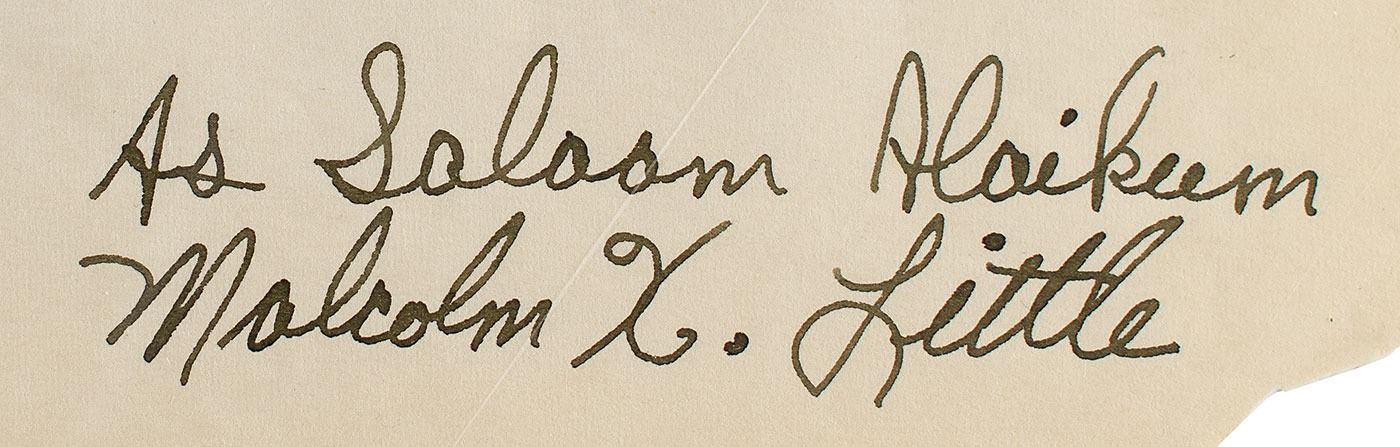 As Salaam Alaikum
Malcolm X. Little